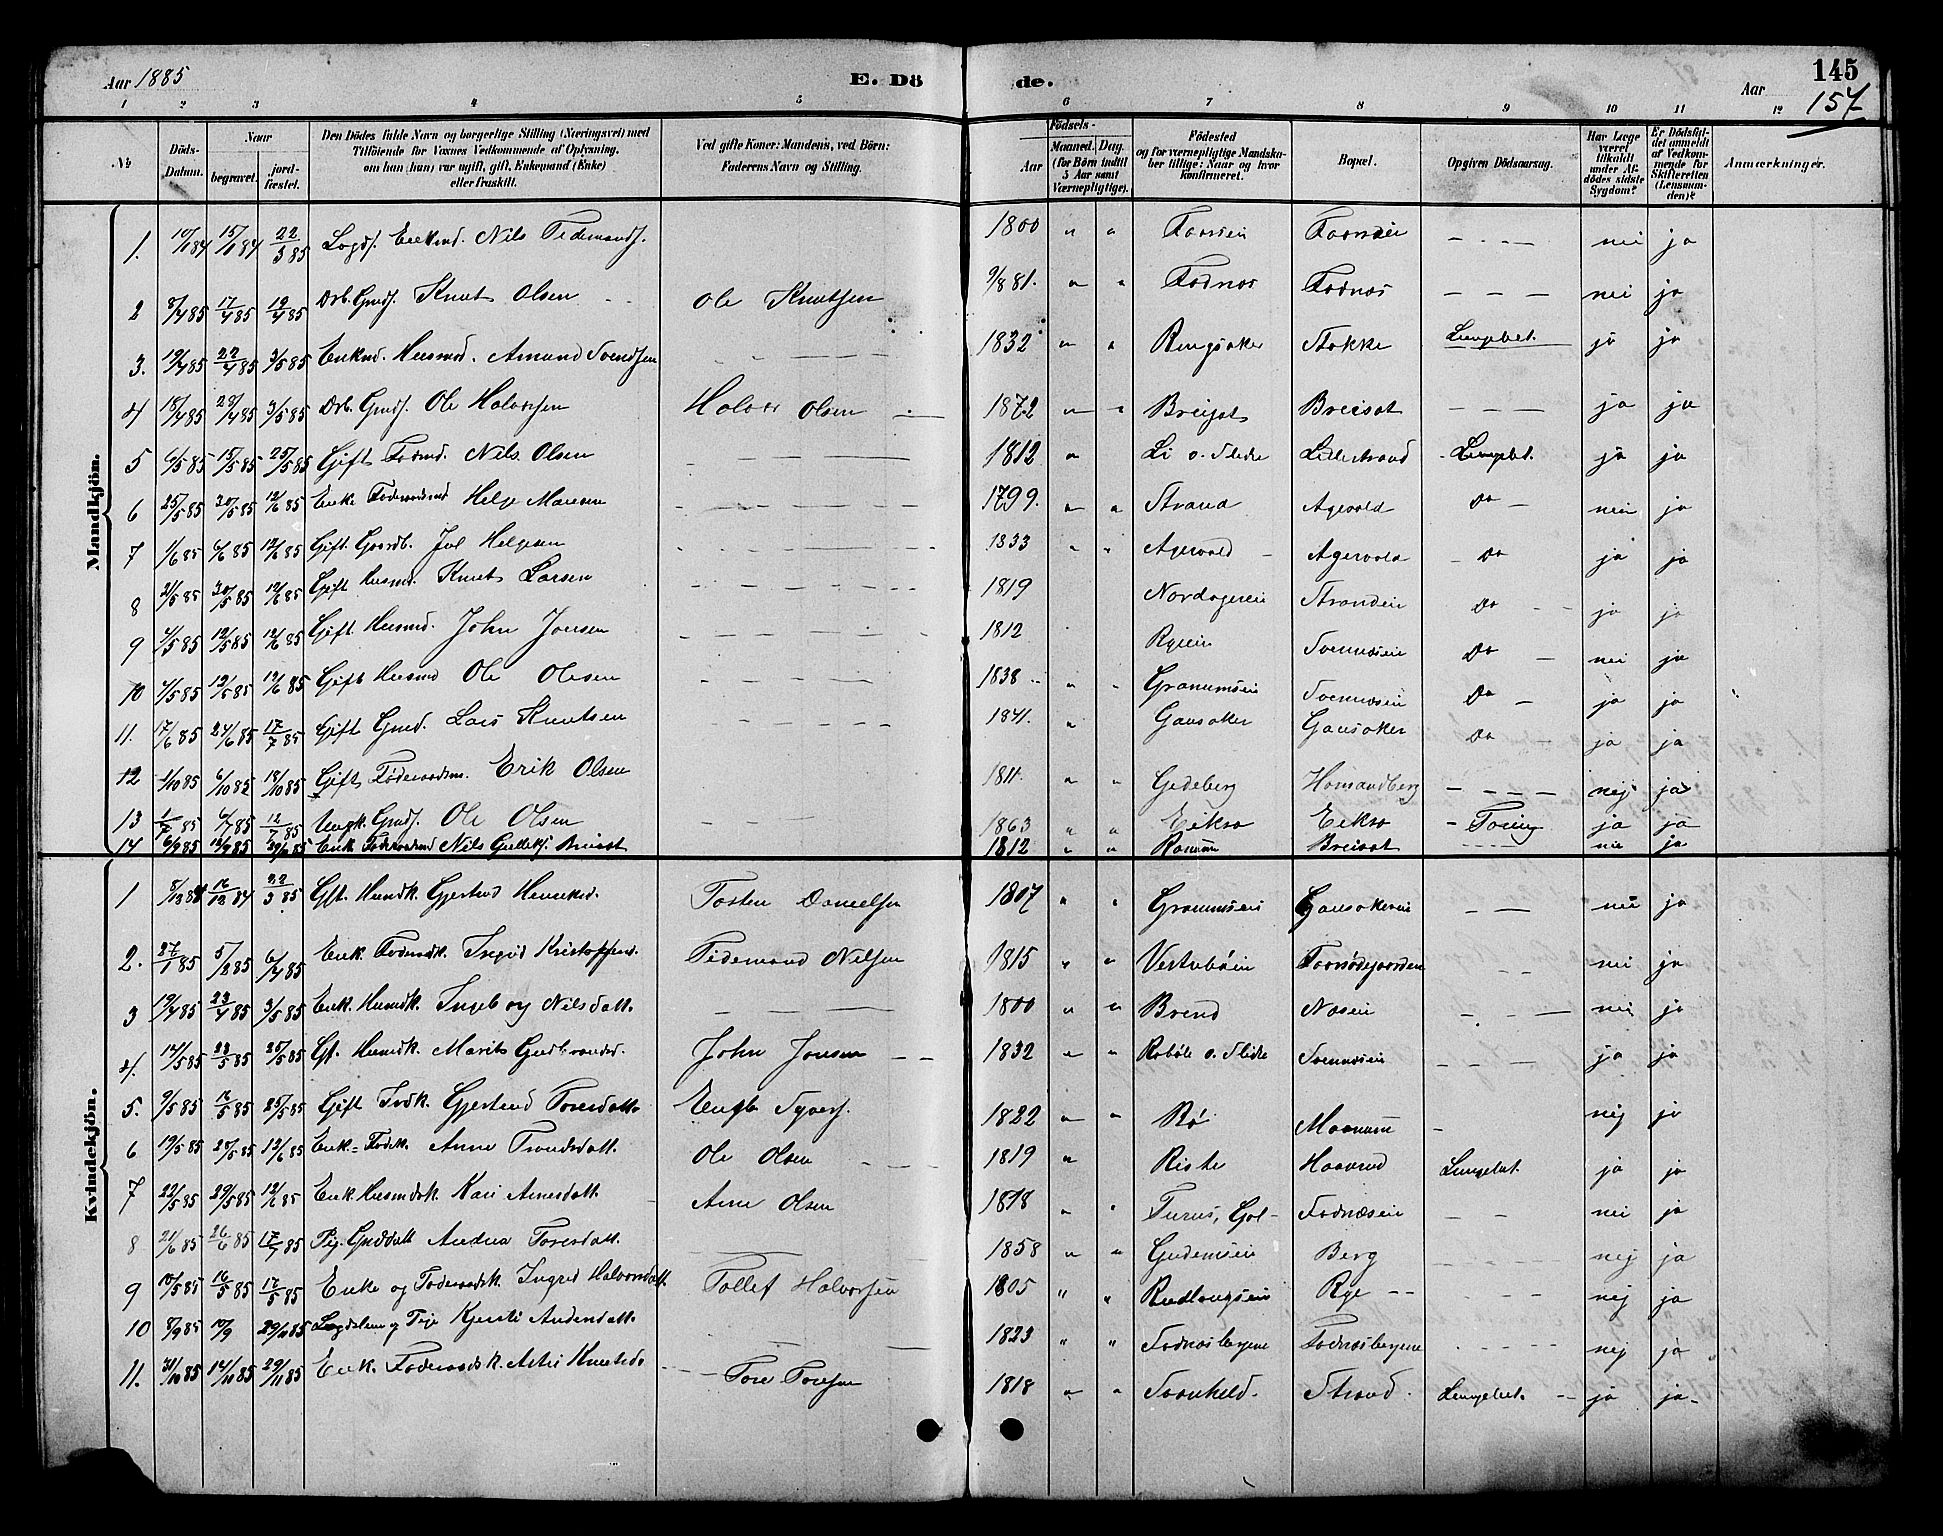 Aar 1885 E. Dö de. Aar 145
157
1 2 3 4 5 6 7 8 9 10 11 12
№ Döds-Datum. Naar begravet. jordfæstet. Den Dödes fulde Navn og borgerlige Stilling (Næringsvei) med Tilföiende for Voxnes Vedkommende af Oplysning, om han (hun) var ugift, gift, Enkemand (Enke) eller fraskilt. Ved gifte Koner: Mandens, ved Börn: Faderens Navn og Stilling. Födsels- Aar Maaned. Dag. (for Börn indtil 5 Aar samt Værnepligtige). Födested og for værnepligtige Mandskaber tillige: Naar og hvor konfirmeret. Bopæl. Opgiven Dödsaarsag. Har Læge været tilkaldt under Afdödes sidste Sygdom? Er Dödsfaldet anmeldt af Vedkommende for Skifteretten (Lensmanden)? Anmærkninger.
Mandkjön.
1. 10/1 84 15/1 84 22/3 85 Lægds. Enkmd. Nils Tidemands. 1800 " " nei ja
2 8/4 85 17/4 85 19/4 85 Drb. Gmds. Knut Olsen Ole Knutsen 9/8 81. " " Fodnæs Fodnæs nei ja
3. 19/4 85 22/4 85 3/5 85 Enkmd. Husmd. Amund Svendsen 1832 " " Ringsaker Stokke Lungebet. ja ja
4 18/4 85 29/4 85 3/5 85 Drb. Gmds. Ole Halvorsen Halvor Olsen 1872 " " Breisat Breisat ja ja
5 6/5 85 15/5 85 25/5 85 Gift Fodmd. Nils Olsen 1812 " Li o. Slidre Lillestrand Lungebet. ja ja
6 25/5 85 30/5 85 12/6 85 Enke Föderaadsmd Helge 1799. " " Strand Agervold Do nei ja
7 1/6 85 6/6 85 12/6 85 Gift. Gaardb. Jul Helgesen 1833 " " Agervold Agervold Do ja ja
8 21/5 85 30/5 85 12/6 85 Gift Husmd. Knut Larsen 1819 Nordagereie Strandeie Do ja ja
9 4/5 85 12/5 85 12/6 85 Gift. Husmd. John Jonsen 1812 Ryeeie Svennæseie Do nei ja
10 4/5 85 12/5 85 12/6 85 Gift Husmd Ole Olesen 1838 " " Granumseie Svennæseie Do ja ja
11. 17/6 85 24/6 85 17/7 85 Gift Gmd. Lars Knutsen 1841. " Gausaker Gausaker Do ja ja
12 1/10 85 6/10 85 18/10 85 Gift Föderaadsm. Erik Olsen 1811. " " Gedeberg Homandberg nej ja
13 1/7 85 6/7 85 12/7 85 Ungk. Gmds. Ole Olsen 1863 " " Eikro Eikro Tæring ja ja
14 6/9 85 12/9 85 29/11 85 Enk. Föderaadsmd Nils Gulliks. Breisat 1812 " " Ranum Breisat nei ja
Kvindekjön.
1 8/12 84 16/12 84 22/3 85 Gft. Husmdk. Gjertrud Henriksd. Tosten Danielsen 1807 " " Granumseie Gausakereie nei ja
2. 27/1 85 5/2 85 6/4 85 Enk. Födraadk. Ingrid Kristoffersd. Tidemand Nilsen 1815 " " nei ja
3 19/4 85 23/4 85 3/5 85 Enk. Husmdk. Ingeborg Nilsdatt. 1800 " " Brend Næseie nei ja
4. 12/5 85 23/5 85 25/5 85 Gt. Husmdk. Marit Gudbrandsd. John Jonsen 1832 " " Robøle o. Slidre Svennæseie ja ja
5. 9/5 85 16/5 85 25/5 85 Gift Fodk. Gjertrud Toresdatt. Engb. Syvers. 1822 " " Rö nej ja
6 19/5 85 28/5 85 12/6 85 Enk= Fodk. Anne Trondsdatt. Ole Olsen 1819 " Riste Haavrud Lungebet. ja ja
7 22/5 85 29/5 85 12/6 85 Enk. Husmdsk. Kari Arnesdatt. Arne Olsen 1818 " Turus, Gol- Fodnæseie nei ja
8 21/6 85 26/6 85 17/7 85 Pig. Gmddatt Andrea Toresdatt. 1858 " " Gudemseie Berg nej ja
9 10/5 85 16/5 85 17/5 85 Enke og Föderaadsk. Ingrid Halvorsdatt. Tollef Halvorsen 1805 " " Rudlangseie Rye nej ja
10 8/9 85 10/9 29/11 85 Lægdslem og Pige Kjersti Andersdatt. 1823 " " Fodnæsbergene Fodnæsbergene nej ja
11. 31/10 85 14/11 85 29/11 85 Enk. Föderaadsk. Astri Knutsd. Tore Toresen 1818 " " Strand. Lungebet. ja ja